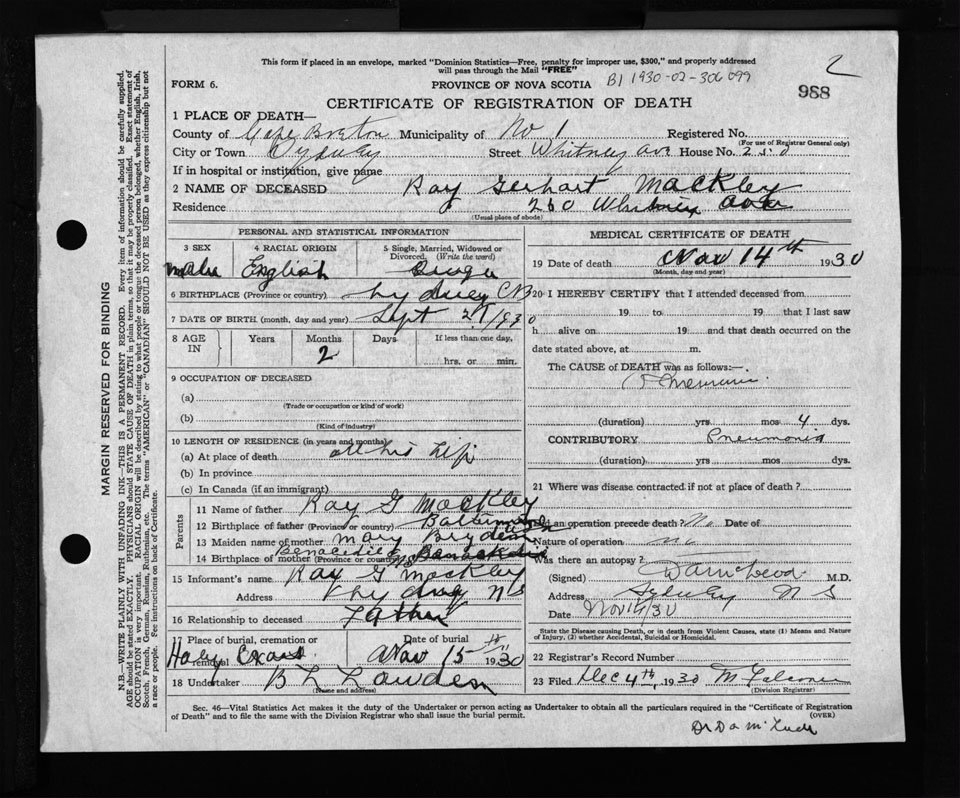 This form if placed in an envelope, marked "Dominion Statistics—Free, penalty for improper use, $300," and properly addressed
will pass through the Mail "FREE"
2
FORM 6.
PROVINCE OF NOVA SCOTIA
B1 1930-02-306099
988
CERTIFICATE OF REGISTRATION OF DEATH
1 PLACE OF DEATH—
County of Cape Breton Municipality of No 1 Registered No.
(For use of Registrar General only)
City or Town Sydney Street Whitney Ave House No.
If in hospital or institution, give name
2 NAME OF DECEASED Ray Gerhart Mackley
Residence 260 Whitney Ave
(Usual place of abode)
PERSONAL AND STATISTICAL INFORMATION
3 SEX
male
4 RACIAL ORIGIN
English
5 Single, Married, Widowed or
Divorced. (Write the word)
Single
6 BIRTHPLACE (Province or country) Sydney CB
7 DATE OF BIRTH (month, day and year) Sept 27 1930
8 AGE IN
Years
Months
2
Days
If less than one day,
hrs. or min.
9 OCCUPATION OF DECEASED
(a)
(Trade or occupation or kind of work)
(b)
(Kind of industry)
10 LENGTH OF RESIDENCE (in years and months)
(a) At place of death all his life
(b) In province
(c) In Canada (if an immigrant)
Parents
11 Name of father Ray G Mackley
12 Birthplace of father (Province or country)
13 Maiden name of mother Mary Bryden
14 Birthplace of mother (Province or country)
15 Informant's name Ray G Mackley
Address Sydney NS
16 Relationship to deceased Father
17 Place of burial, cremation or
removal Holy Cross
Date of burial
Nov 15 1930
18 Undertaker
(Name and address)
MEDICAL CERTIFICATE OF DEATH
19 Date of death Nov 14th 1930
(Month, day and year)
20 I HEREBY CERTIFY that I attended deceased from
19 to 19 that I last saw
h alive on 19 and that death occurred on the
date stated above, at m.
The CAUSE of DEATH was as follows:—
(duration) yrs mos 4 dys.
CONTRIBUTORY Pneumonia
(duration) yrs mos dys.
21 Where was disease contracted if not at place of death?
Did an operation precede death? No Date of
Nature of operation
Was there an autopsy? no
(Signed) M.D.
Address Sydney N S
Date Nov 30
State the Disease causing Death, or in death from Violent Causes, state (1) Means and Nature
of Injury, (2) whether Accidental, Suicidal or Homicidal.
22 Registrar's Record Number
23 Filed Dec 4th, 1930 M Falconer
(Division Registrar)
Sec. 46—Vital Statistics Act makes it the duty of the Undertaker or person acting as Undertaker to obtain all the particulars required in the "Certificate of Registration
of Death" and to file the same with the Division Registrar who shall issue the burial permit.
(OVER)
MARGIN RESERVED FOR BINDING
N.B.—WRITE PLAINLY WITH UNFADING INK—THIS IS A PERMANENT RECORD. Every item of information should be carefully supplied.
AGE should be stated EXACTLY. PHYSICIANS should STATE CAUSE OF DEATH in plain terms, so that it may be properly classified. Exact statement of
OCCUPATION is very important. RACIAL ORIGIN will be described by stating to what people or tongue the deceased person belonged, whether English, Irish,
Scotch, French, German, Russian, Ruthenian, etc. The terms "AMERICAN" or "CANADIAN" SHOULD NOT BE USED as they express citizenship but not
a race or people. See instructions on back of Certificate.